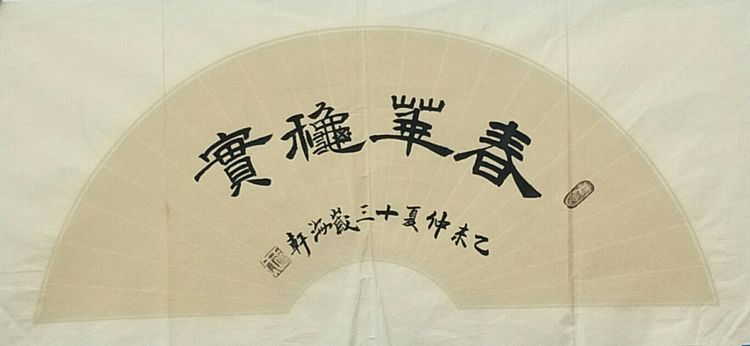 春華龝實
乙未仲夏十三歲海軒